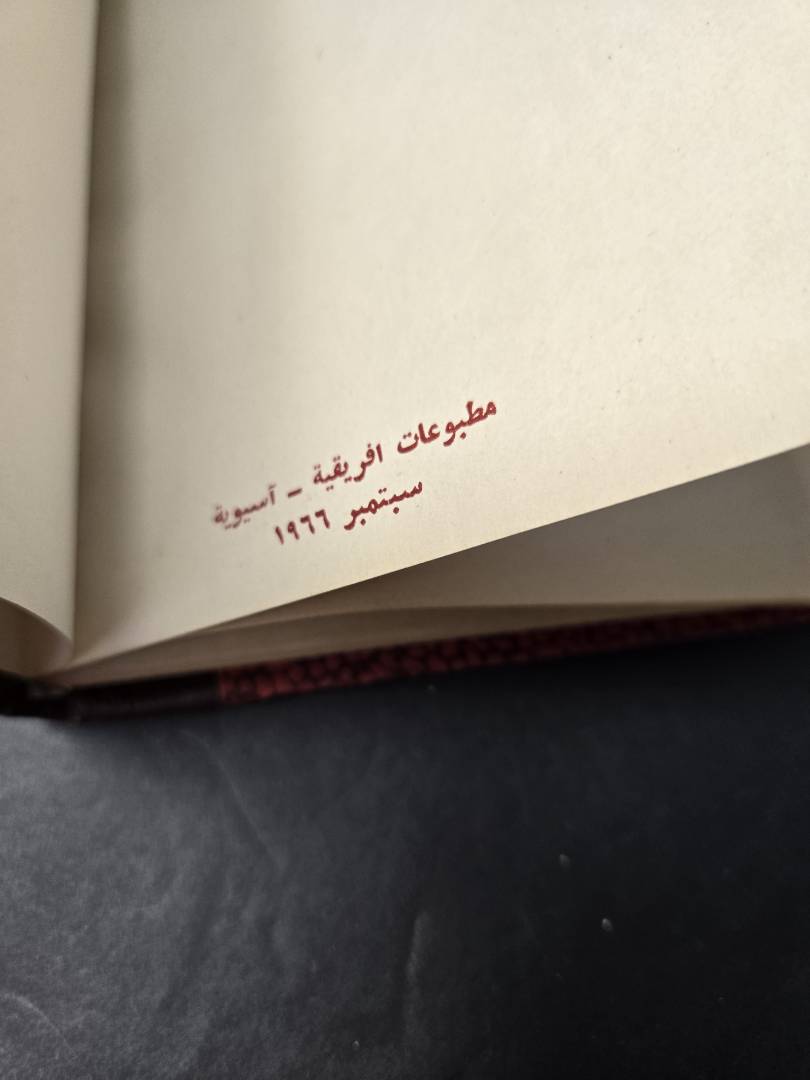 مطبوعات افريقية - آسيوية
سبتمبر ١٩٦٦